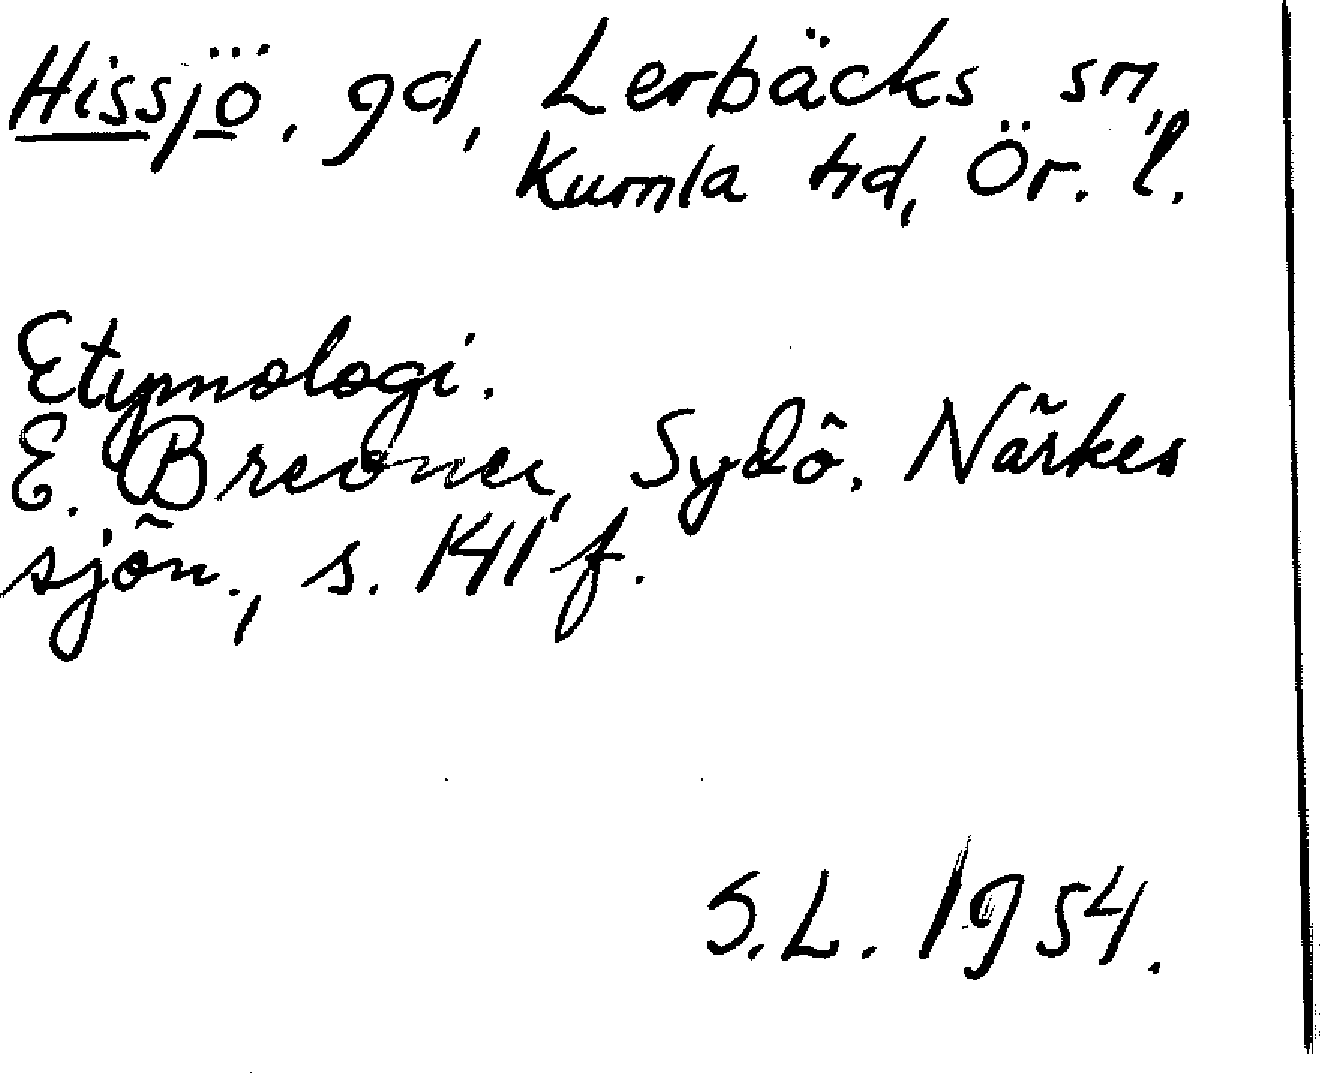 Hissjö, gd, Lerbäcks sn,
Kumla hd, Ör. l.
Etymologi.
E. Brevner, Sydö. Närkes
sjön., s. 141 f.
S.L. 1954.